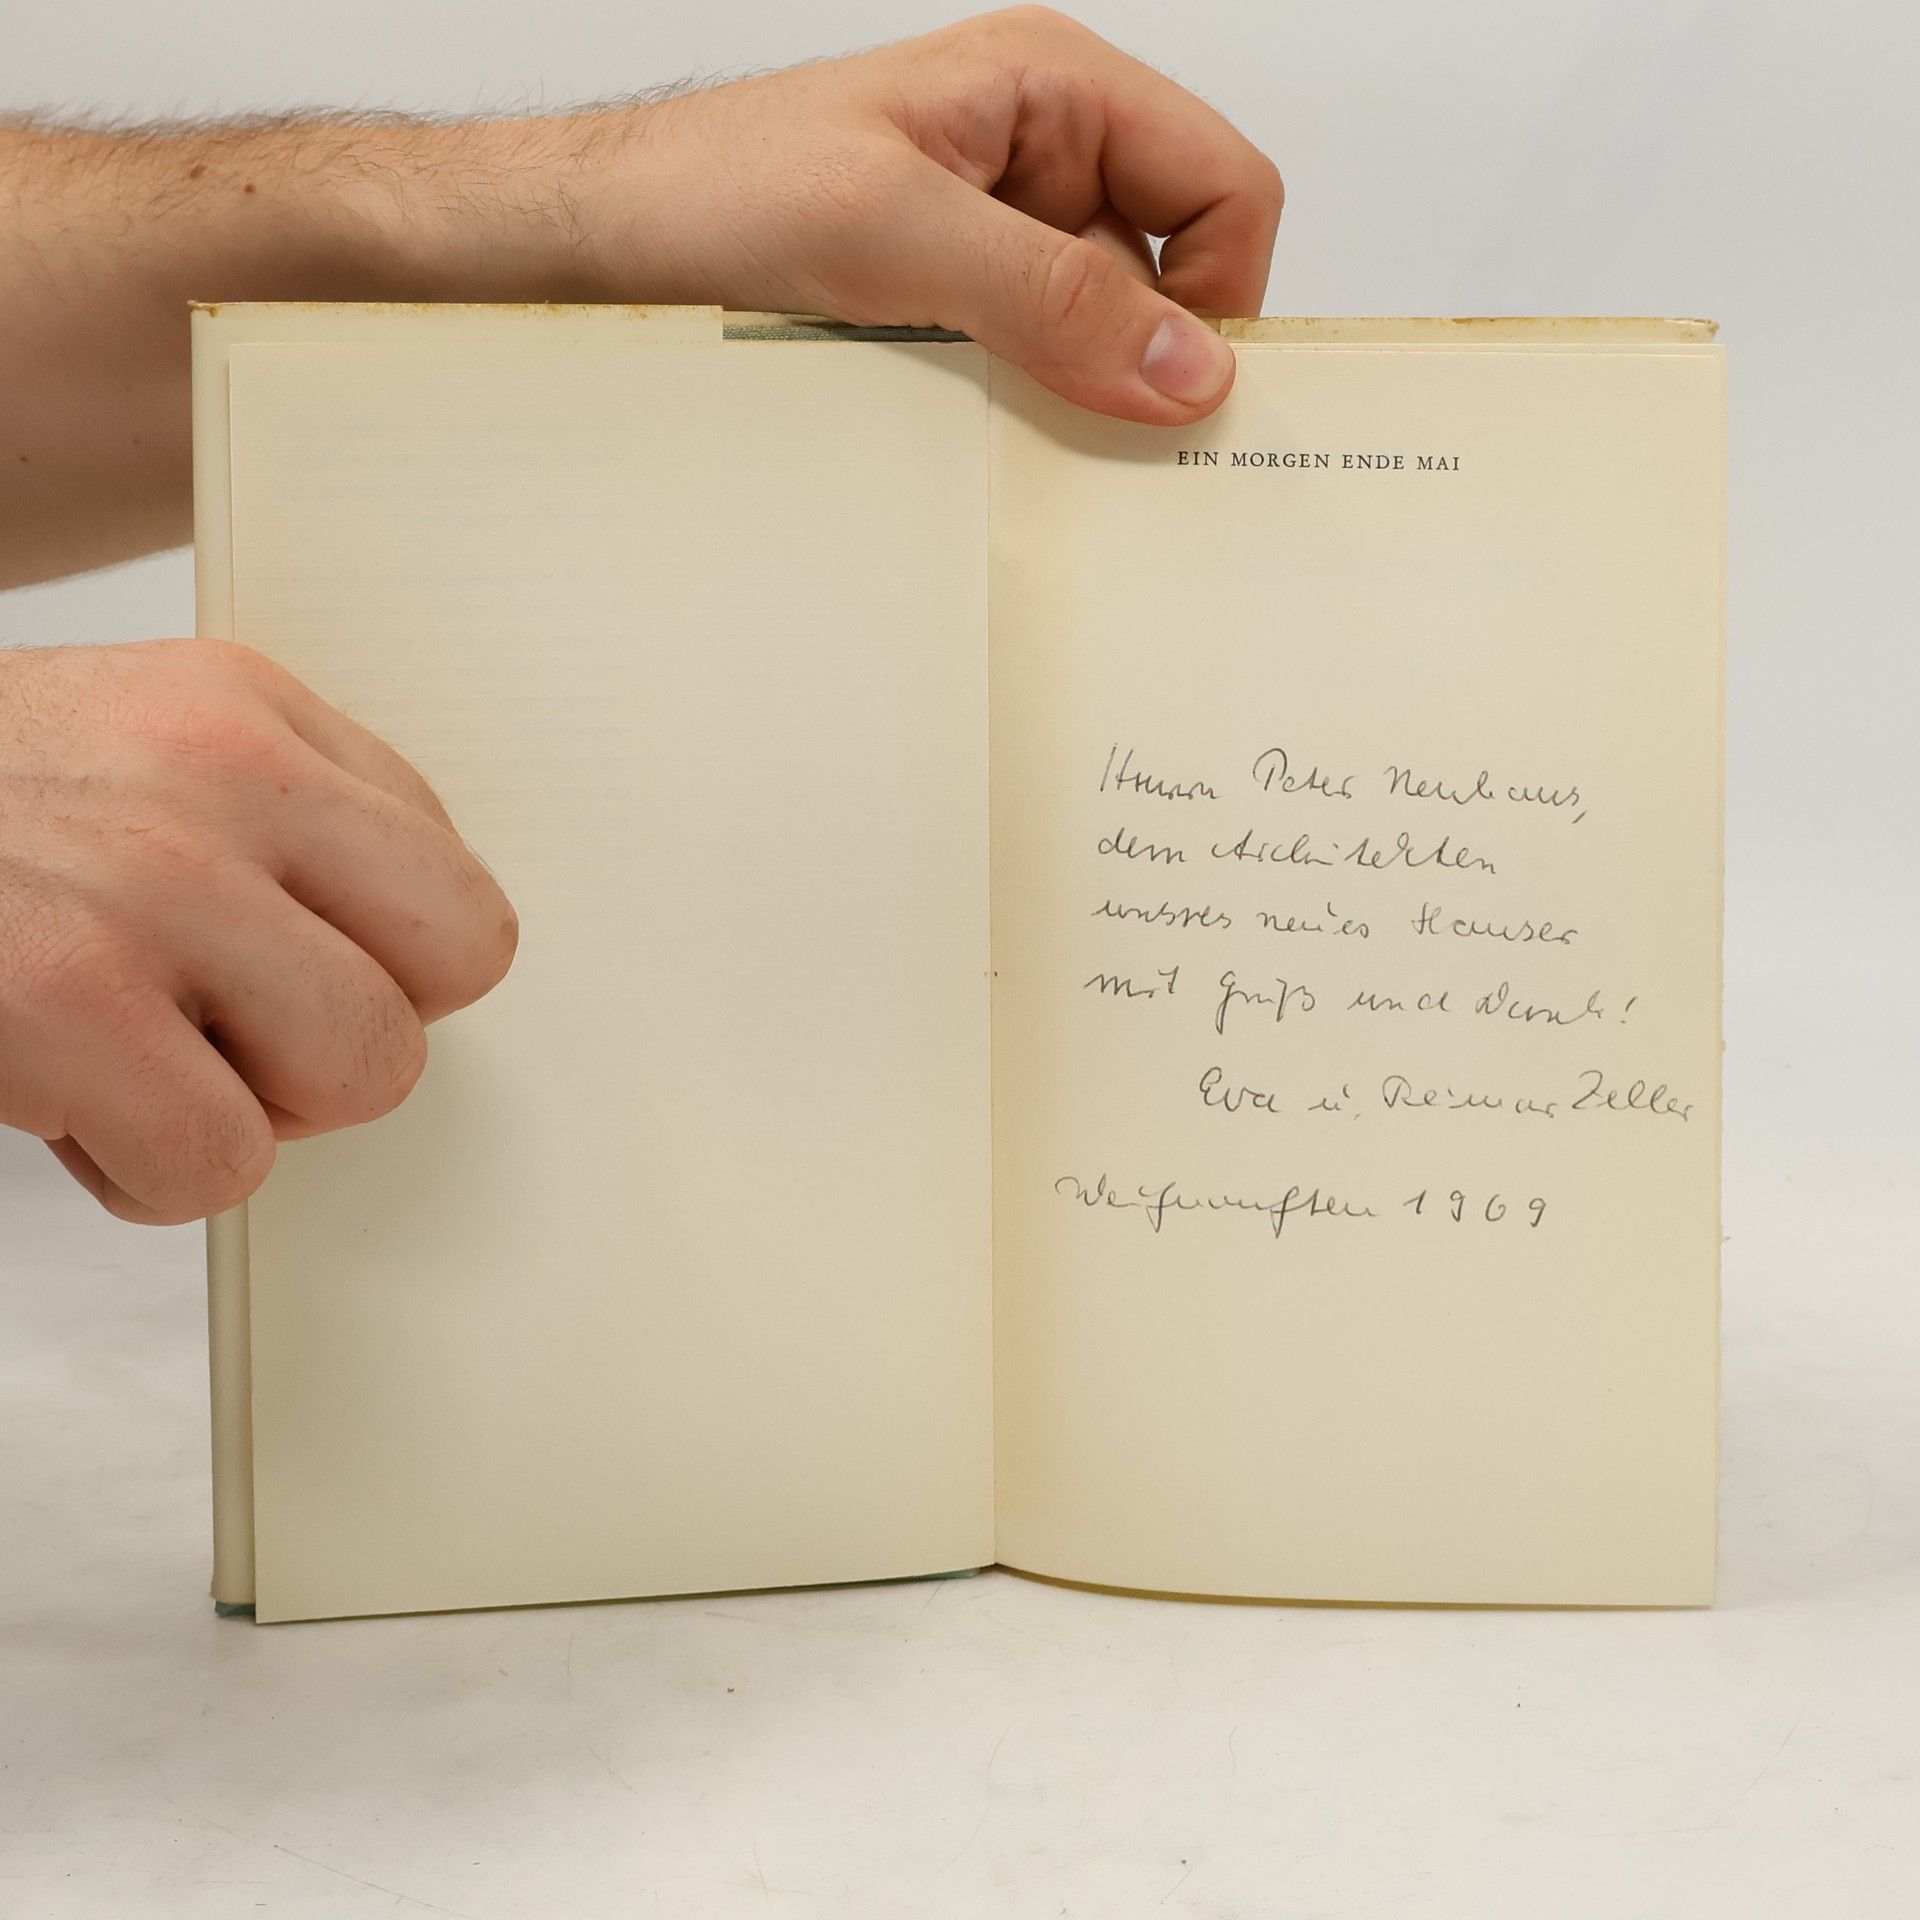 EIN MORGEN ENDE MAI
Herrn Peter Neuhaus,
dem Architekten
unsres neues Hauser
mit Gruß und Dank!
Eva u. Reimar Zeller
Weihnachten 1969